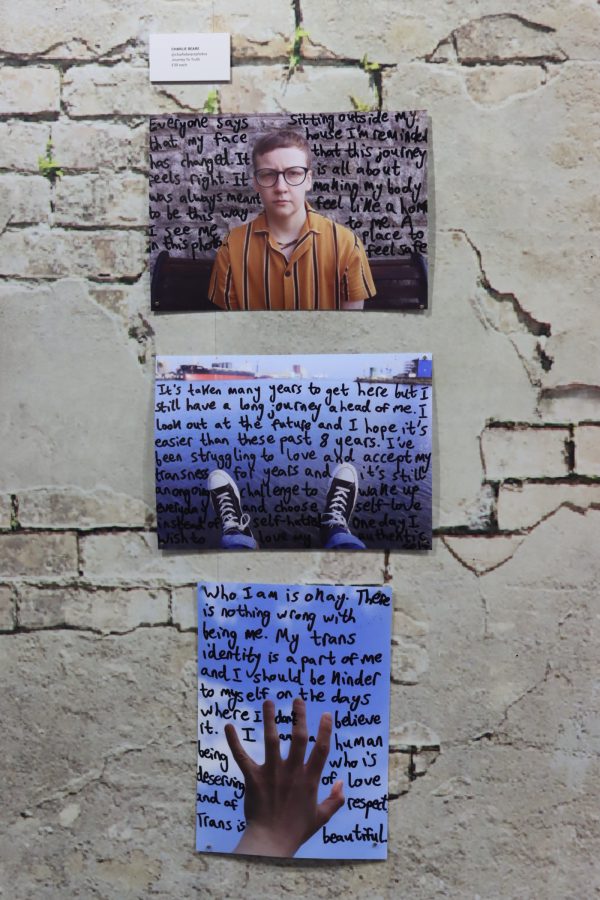 CHARLIE BEARE
Journey To Truth
Everyone says
that my face
has changed. It
feels right. It
was always meant
to be this way
I see me
in this photo
Sitting outside my
house I'm reminded
that this journey
is all about
making my body
feel like a home
to me. A
place to
feel safe
It's taken many years to get here but I
still have a long journey ahead of me. I
look out at the future and I hope it's
easier than these past 8 years. I've
been struggling to love and accept my
transness for years and it's still
an ongoing challenge to wake up
everyday and choose self-love
instead of self-hatred. One day I
wish to love my authentic
self
Who I am is okay. There
is nothing wrong with
being me. My trans
identity is a part of me
and I should be kinder
to myself on the days
where I don't believe
it. I am a human
being who is
deserving of love
and of respect
Trans is beautiful.